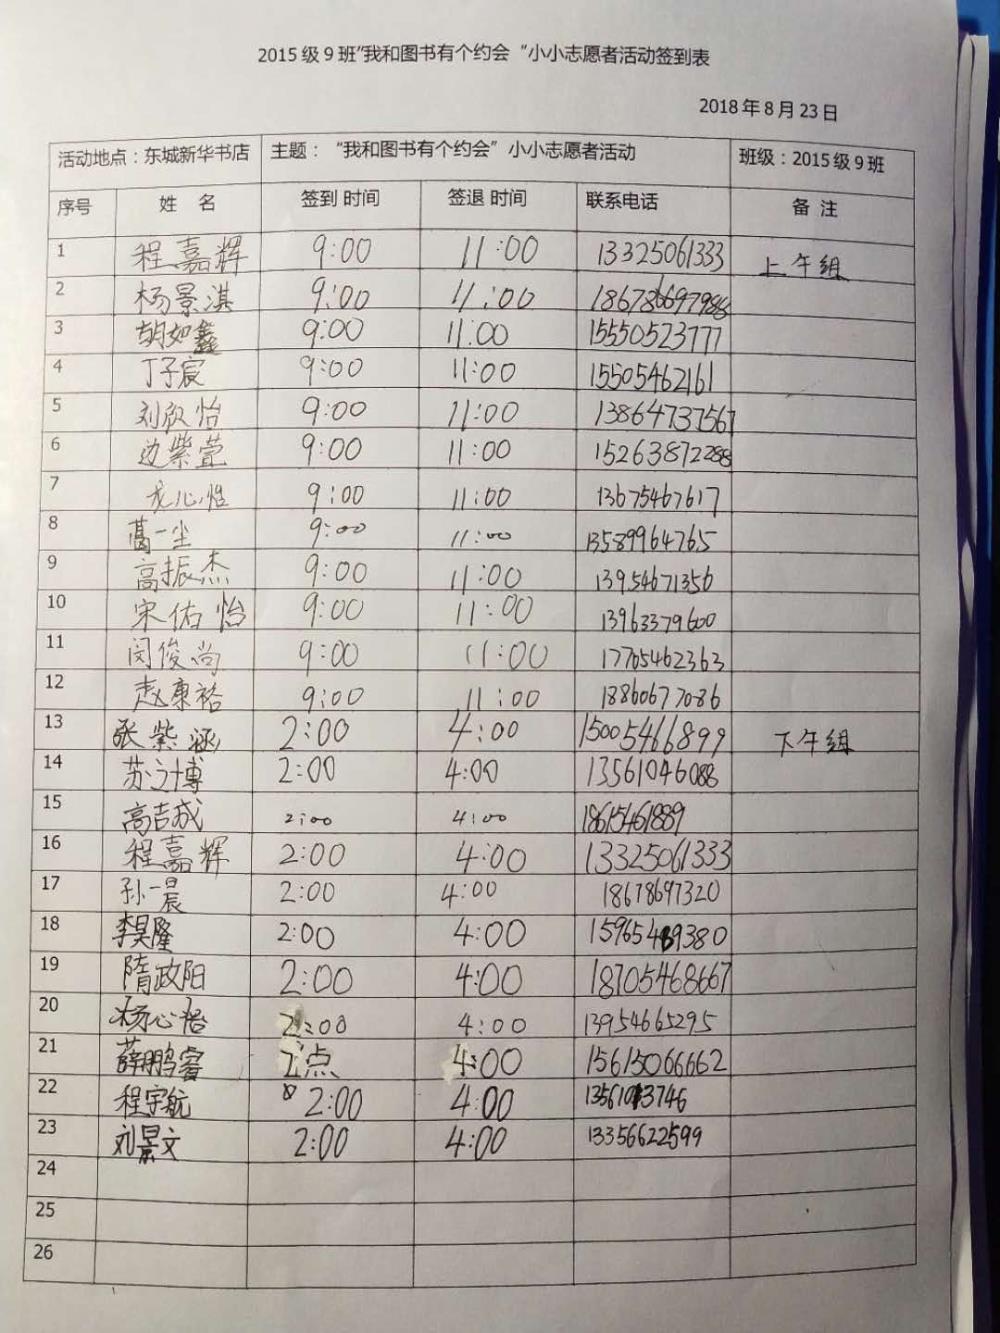 2015级9班"我和图书有个约会"小小志愿者活动签到表
2018年8月23日
活动地点：东城新华书店 主题："我和图书有个约会"小小志愿者活动 班级：2015级9班
序号 姓 名 签到 时间 签退 时间 联系电话 备 注
1 程嘉辉 9:00 11:00 13325061333 上午组
2 杨景淇 9:00 11:00
3 胡如鑫 9:00 11:00 15550523777
4 丁子宸 9:00 11:00 15505462161
5 刘欣怡 9:00 11:00 13864737567
6 边紫萱 9:00 11:00 15263872288
7 尤心怡 9:00 11:00 13675467617
8 葛一尘 9:00 11:00 13589964765
9 高振杰 9:00 11:00 13954671356
10 宋佑怡 9:00 11:00 13963379600
11 闵俊尚 9:00 11:00 17705462363
12 赵康裕 9:00 11:00 13860677086
13 张紫涵 2:00 4:00 15005466899 下午组
14 苏之博 2:00 4:00 13561046088
15 高吉成 2:00 4:00 18615461889
16 程嘉辉 2:00 4:00 13325061333
17 孙一晨 2:00 4:00 18678697320
18 李昊隆 2:00 4:00
19 隋政阳 2:00 4:00 18705468667
20 杨心怡 2:00 4:00 13954665295
21 薛鹏睿 2点 4:00 15615066662
22 程宇航 2:00 4:00
23 刘景文 2:00 4:00 13356622599
24
25
26